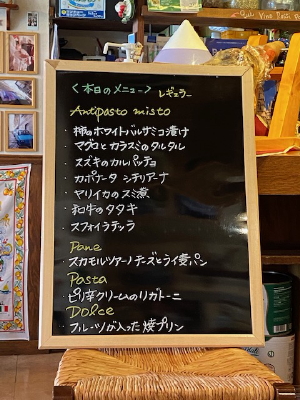 <本日のメニュー>
レギュラー
Antipasto misto
・柿のホワイトバルサミコ漬け
・マグロとカラスミのタルタル
・スズキのカルパッチョ
・カポナータ シチリアーナ
・ヤリイカのスミ煮
・和牛のタタキ
・スフォリアテッラ
Pane
・スカモルツァーノチーズとライ麦パン
Pasta
・ピリ辛クリームのリガトーニ
Dolce
・フルーツが入った焼プリン